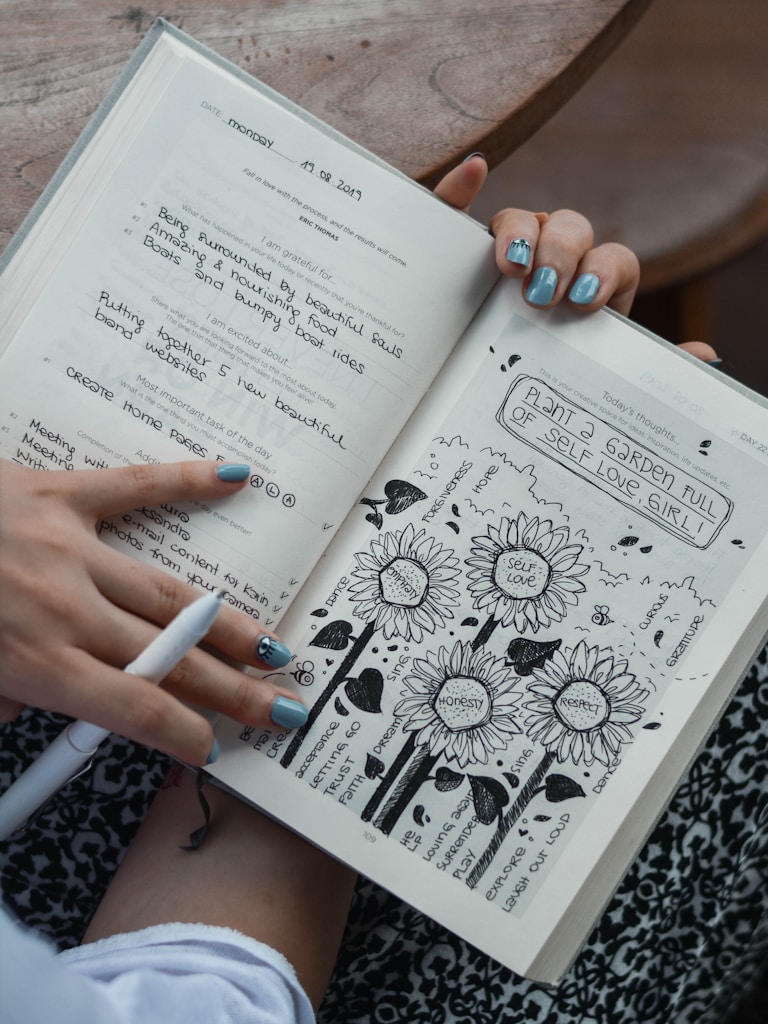 DATE: monday 19.08.2019
Fall in love with the process, and the results will come.
ERIC THOMAS
I am grateful for...
What has happened in your life today or recently that you're thankful for?
#1 Being surrounded by beautiful souls
#2 Amazing & nourishing food
#3 Boats and bumpy boat rides
I am excited about...
Share what you are looking forward to the most about today.
The one thing that makes you feel alive!
Putting together 5 new beautiful
band websites
Most important task of the day
What is the one thing you must accomplish today?
#1 create Home Pages
A L A
Completion of
day even better!
#2 Meeting with
#3 Meeting
e-mail content for Karin
photos from your camera
Today's thoughts...
This is your creative space for ideas, inspiration, life updates, etc.
DAY 22
PLANT A GARDEN FULL
OF SELF LOVE, GIRL!
FORGIVENESS
HOPE
DANCE
EMPATHY
SELF
LOVE
CURIOUS
GRATITUDE
SING
HONESTY
RESPECT
DREAM
SING
DANCE
acceptance
LETTING GO
TRUST
FAITH
HE
LP
LOVING
SURRENDER
PLAY
EXPLORE
LAUGH OUT LOUD
109